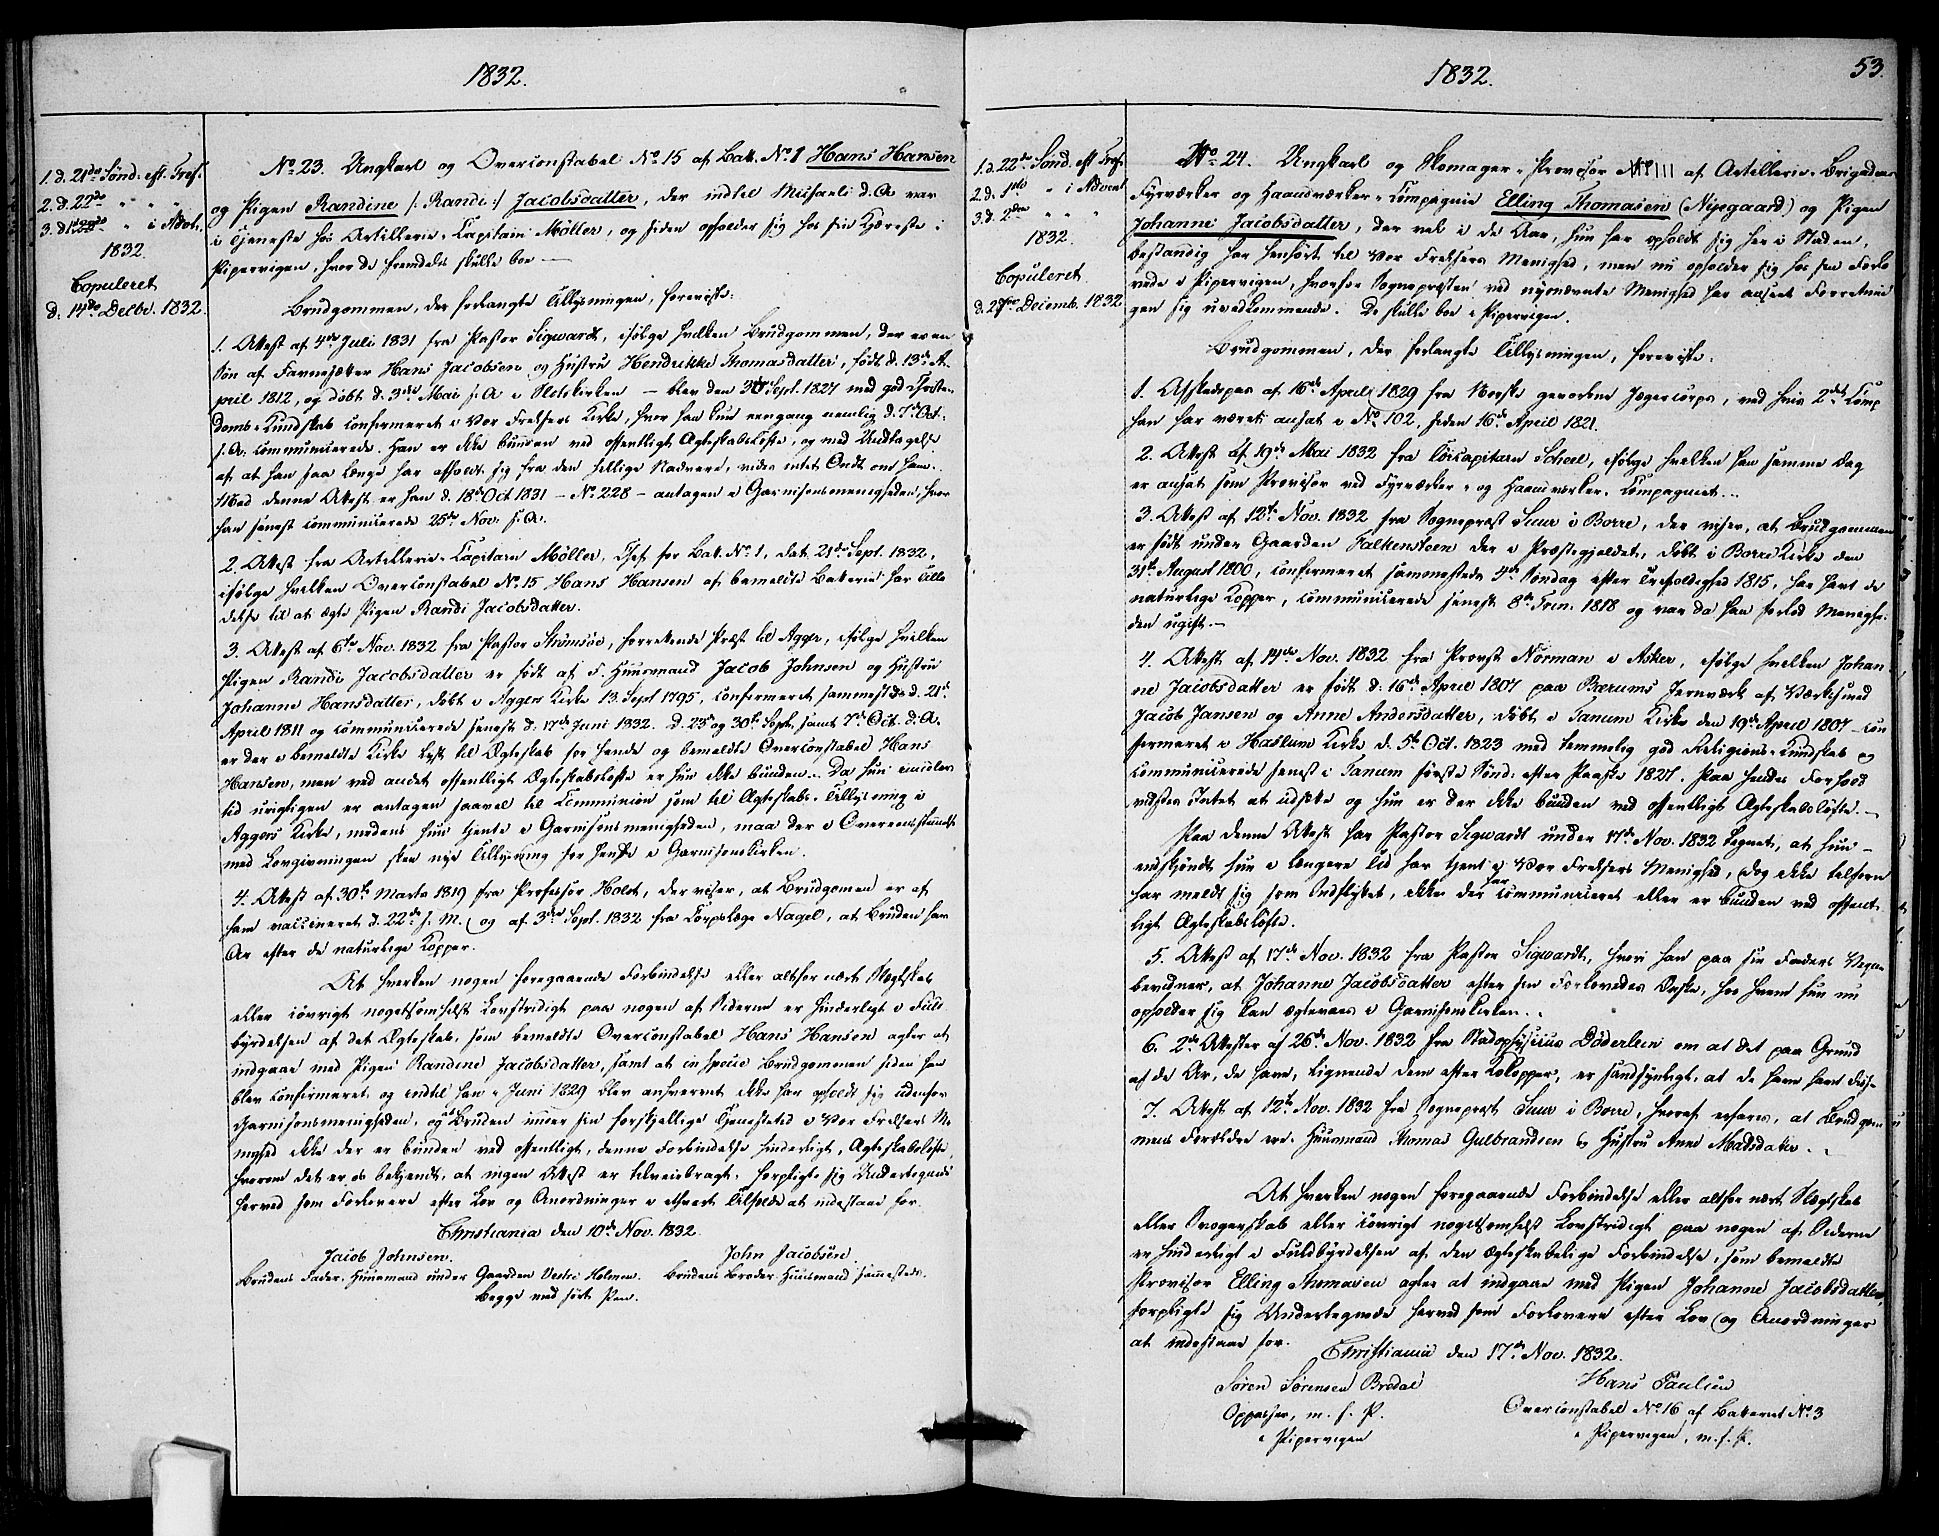 1832.
1. d. 21de Sønd. eft. Tref.
2. d. 22de " " "
3. d. " i Advt.
1832.
Copuleret
d. 14de Decbr. 1832.
No 23. Ungkarl og Overconstabel No 15 af Batt. No 1 Hans Hansen
og Pigen Randine /: Randi :/ Jacobsdatter, der indtil Michaeli d. A. var
i Tjeneste hos Artillerie-Capitain Møller, og siden opholder sig hos sin Kjæreste i
Pipervigen, hvor de fremdeles skulle boe —
Brudgommen, der forlangte Tillysningen, foreviste:
1. Attest af 4de Juli 1831 fra Pastor Sigwardt, ifølge hvilken Brudgommen, der er en
Søn af Hans Jacobsen og Hustru Hendrikke Thomasdatter, født d. 13de A-
pril 1812, og døbt d. 3die Mai s. A. i Slotskirken — blev den 30te Sept. 1827 med god Christen-
doms-Kundskab confirmeret i Vor Frelsers Kirke, hvor han kun eengang nemlig d. 7de Oct.
s. A. communicerede. Han er ikke bunden ved offentligt Ægteskabsløfte, og med Undtagelse
af at han saa længe har afholdt sig fra den hellige Nadvere, vides intet Ondt om ham.
Med denne Attest er han d. 18de Oct 1831 — No 228 — antagen i Garnisonsmenigheden, hvor
han senest communicerede 25de Nov. s. A.
2. Attest fra Artillerie-Capitain Møller, Chef for Bat. No 1, dat. 21de Sept. 1832,
ifølge hvilken Overconstabel No 15 Hans Hansen af bemeldte Batterie har Tilla-
delse til at ægte Pigen Randi Jacobsdatter.
3. Attest af 6te Nov. 1832 fra Pastor Strømsøe, Præst til Agger, ifølge hvilken
Pigen Randi Jacobsdatter er født af F. Huusmand Jacob Johnsen og Hustru
Johanne Hansdatter, døbt i Aggers Kirke 13. Sept 1795, confirmeret sammesteds d. 21de
April 1811 og communicerede senest d. 17de Juni 1832. d. 23de og 30te Sept. samt 7de Oct. d. A.
er der i bemeldte Kirke lyst til Ægteskab for hende og bemeldte Overconstabel Hans
Hansen, men ved andet offentligt Ægteskabsløfte er hun ikke bunden. Da hun imidler-
tid urigtigen er antagen saavel til Communion som til Ægteskabs-Tillysning i
Aggers Kirke, medens hun tjente i Garnisonsmenigheden, maa der i Overeensstemmelse
med Lovgivningen skee nye Tillysning for hende i Garnisonskirken.
4. Attest af 30te Marts 1819 fra Professor Holst, der viser, at Brudgomen er af
ham vaccineret d. 22de s. M. og af 3die Sept. 1832 fra Corpslæge Nagel, at Bruden har
Ar efter de naturlige Kopper.
At hverken nogen foregaaende Forbindelse eller altfor nært Slægtskab
eller iøvrigt nogetsomhelst Lovstridigt paa nogen af Siderne er hinderligt i Fuld-
byrdelsen af det Ægteskab, som bemeldte Overconstabel Hans Hansen agter at
indgaae med Pigen Randine Jacobsdatter, samt at in specie Brudgommen siden han
blev confirmeret og indtil han i Juni 1829 blev anhvervet ikke har opholdt sig udenfor
Garnisonsmenigheden, og Bruden under sin forskjellige Tjenestetid i Vor Frelsers Me-
nighed ikke der er bunden ved offentligt, denne Forbindelse hinderligt, Ægteskabsløfte,
hvorom det er os bekjendt, at ingen Attest er tilveiebragt, forpligte sig Undertegnede
herved som Forlovere efter Lov og Anordninger i ethvert Tilfælde at indestaae for.
Christiania den 10de Nov. 1832.
Jacob Johnsen.
Brudens Fader. Huusmand under Gaarden Vestre Holmen.
John Jacobsen.
Brudens Broder. Huusmand sammesteds.
begge med ført Pen.
1832.
53.
1. d. 22de Sønd. eft. Tref.
2. d. 1ste " i Advent
3. d. 2den " " "
1832.
Copuleret
d. 27de Decemb. 1832
No 24. Ungkarl og Skomager-Provisor No III af Artillerie-Brigadens
Fyrværker og Haandværker-Compagnie Elling Thomasen (Nipegaard) og Pigen
Johanne Jacobsdatter, der vel i de Aar, hun har opholdt sig her i Staden,
bestandig har henhørt til Vor Frelsers Menighed, men nu opholder sig hos sin Forlo-
vede i Pipervigen, hvorfor Sognepræsten ved nysnævnte Menighed har anseet Forretnin-
gen sig uvedkommende. De skulle boe i Pipervigen.
Brudgommen, der forlangte Tillysningen, foreviste:
1. Afskedspas af 16de April 1829 fra Norske gevorbne Jægercorps, ved hvis 2det Comp
han har været ansat i No 102, siden 16de April 1821.
2. Attest af 19de Mai 1832 fra Scheel, ifølge hvilken han samme Dag
er ansat som Provisor ved Fyrværker- og Haandværker-Compagniet.
3. Attest af 12te Nov. 1832 fra Sognepræst Suur i Borre, der viser, at Brudgommen
er født under Gaarden Falkensteen der i Præstegjeldet, døbt i Borre Kirke den
31te August 1800, confirmeret sammesteds 4de Søndag efter Trefoldighed 1815, har havt de
naturlige Kopper, communicerede senest 8de Trin. 1818 og var da han forlod Menighe-
den ugift. —
4. Attest af 14de Nov. 1832 fra Provst Norman i Asker, ifølge hvilken Johan-
ne Jacobsdatter er født d. 16de April 1807 paa Bærums Jernværk af Værksmed
Jacob Jansen og Anne Andersdatter, døbt i Tanum Kirke den 19de April 1807 — con-
firmeret i Haslum Kirke d. 5te Oct. 1823 med temmelig god Religions-Kundskab og
communicerede senest i Tanum første Sønd. efter Paaske 1827. Paa hendes Forhold
vidstes Intet at udsætte og hun er der ikke bunden ved offentligt Ægteskabsløfte. —
Paa denne Attest har Pastor Sigwardt under 17de Nov. 1832 tegnet, at hun —
endskjøndt hun i længere Tid har tjent i Vor Frelsers Menighed, dog ikke
har meldt sig som Indflyttet, ikke der har communiceret eller er bunden ved offent-
ligt Ægteskabsløfte.
5. Attest af 17de Nov. 1832 fra Pastor Sigwardt, hvori han paa sin Faders Vegne
bevidner, at Johanne Jacobsdatter efter sin Forlovedes Ønske, hos hvem hun nu
opholder sig kan ægtevies i Garnisonskirken.
6. 2de Attester af 26de Nov. 1832 fra Stadsphysicus Døderlein om at det paa Grund
af de Ar, de have, lignende dem efter Kokopper, er sandsynligt, at de have havt disse
7. Attest af 12te Nov. 1832 fra Sognepræst Suur i Borre, hvoraf erfares, at Brudgom-
mens Forældre ere Huusmand Thomas Gulbrandsen og Hustru Anne Madsdatter.
At hverken nogen foregaaende Forbindelse eller altfor nært Slægtskab
eller Svogerskab eller iøvrigt nogetsomhelst Lovstridigt paa nogen af Siderne
er hinderligt i Fuldbyrdelsen af den ægteskabelige Forbindelse, som bemeldte
Provisor Elling Thomasen agter at indgaae med Pigen Johanne Jacobsdatter,
forpligte sig Undertegnede herved som Forlovere efter Lov og Anordninger
at indestaae for.
Christiania den 17de Nov. 1832.
Søren Sørensen Bredal
Oppasser, m. f. P.
i Pipervigen
Hans Paulsen
Overconstabel No 16 af Batteriet No 3
i Pipervigen, m. f. P.